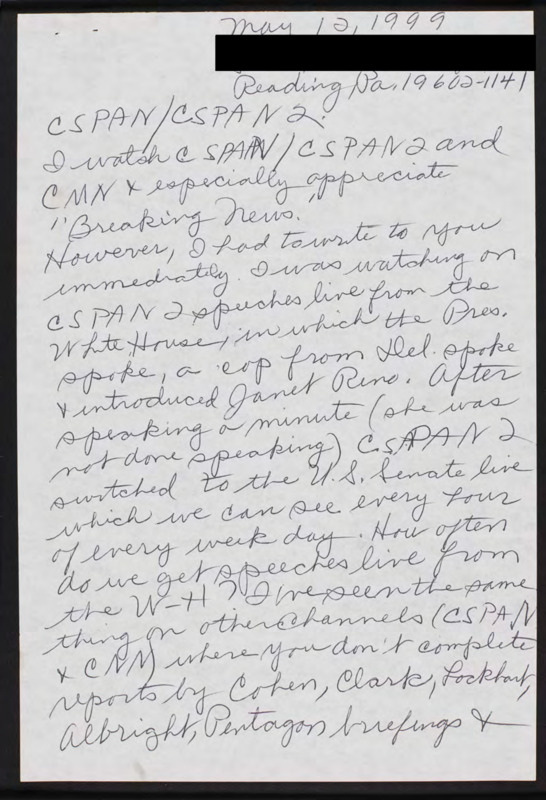 May 12, 1999
Reading, Pa. 19602-1141
CSPAN/CSPAN 2:
I watch CSPAN/CSPAN2 and
CNN & especially appreciate
"Breaking News."
However, I had to write to you
immediately. I was watching on
CSPAN 2 speeches live from the
White House, in which the Pres.
spoke, a cop from Del. spoke
& introduced Janet Reno. After
speaking a minute (she was
not done speaking) CSPAN 2
switched to the U.S. Senate live
which we can see every hour
of every week day. How often
do we get speeches live from
the W-H? I've seen the same
thing on other channels (CSPAN
& CNN) where you don't complete
reports by Cohen, Clark, Lockhart,
Albright, Pentagon briefings &